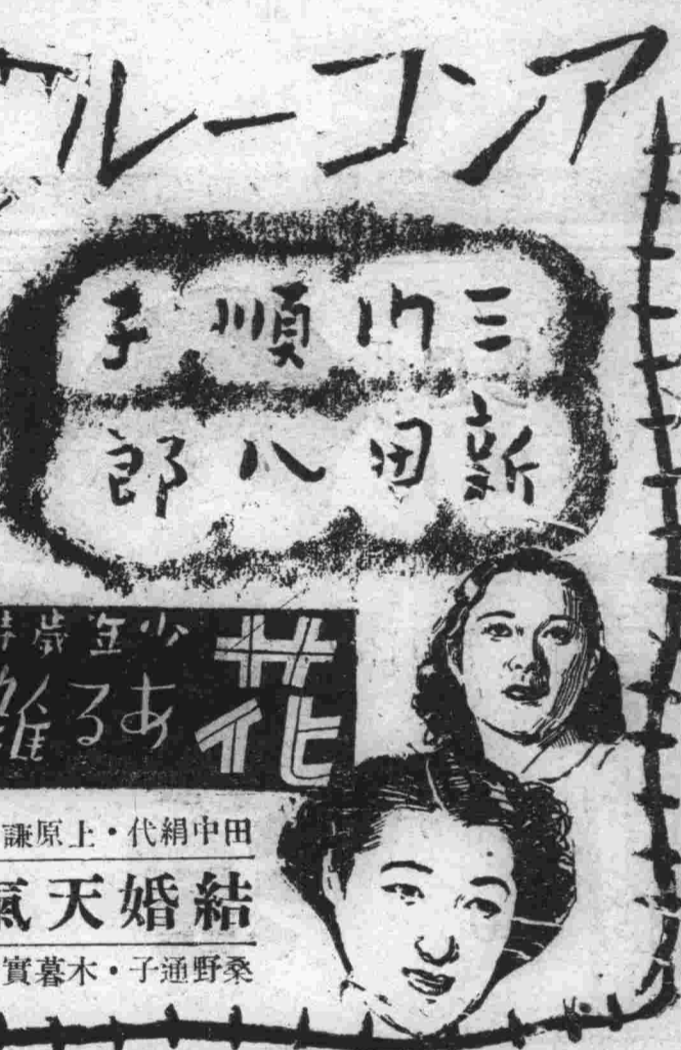 アンコール
三門順子
新田八郎
少年歳
花ある雑
田中絹代・上原謙
結婚天氣
桑野通子・木暮實